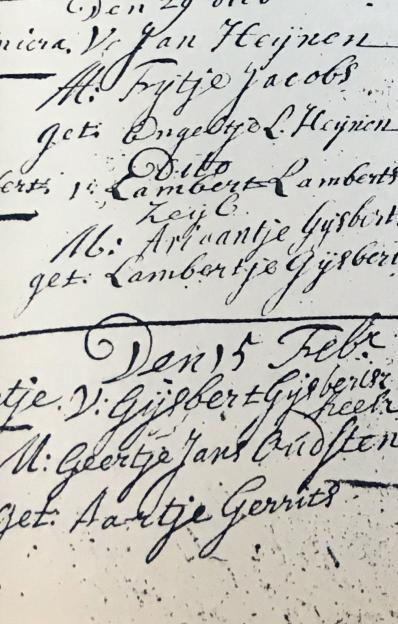 Den 29 dito
micra. V: Jan Heijnen
M: Fytje Jacobs
get: Engeltje L. Heijnen
Ditto
bert: V: Lambert Lamberts
Zeijl
M: Ariaantje Gijsbert
get. Lambertje Gijsber
Den 15 Febr
tje. V: Gijsbert Gijsbertsz
M: Geertje Jans Oudsten
get: Aartje Gerrits